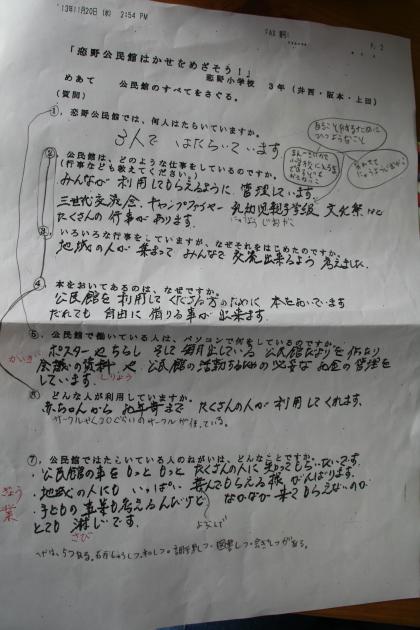 '13年11月20日(水) 2:54 PM
P. 2
「恋野公民館はかせをめざそう！」
恋野小学校 3年（井西・阪本・上田）
めあて 公民館のすべてをさぐる。
(質問)
①，恋野公民館では、何人はたらいていますか。
3人で はたらいています
②，公民館は、どのような仕事をしているのですか。
(行事なども教えてください。)
みんなが 利用してもらえるように 管理しています。
三世代交流会、キャンプファイヤー 乳幼児親子学級 文化祭 など
たくさんの行事が あります。
③いろいろな行事をしていますが、なぜそれをはじめたのですか。
地域の人が 集まって みんなで 交流出来るよう 考えました。
④，本をおいてあるのは、なぜですか。
公民館を利用して くださる方のために 本をおいています
だれでも 自由に 借りる事が 出来ます。
⑤，公民館で働いている人は、パソコンで何をしているのですか。
ポスターや ちらし そして 毎月出している 公民館だよりを 作り
かいぎ
会議の資料や 公民館の活動するための必要な お金の管理を
しりょう
しています。
⑥ どんな人が利用していますか。
赤ちゃんから お年寄まで たくさんの人が 利用してくれます。
⑦，公民館ではたらいている人のねがいは、どんなことですか。
・公民館の事を もっと もっと たくさんの人に 知ってもらいたいです。
・地域の人にも いっぱい 喜んでもらえる様 がんばります。
・子どもの 事業も 考えるんだけど なかなか 来てもらえないのが
業
よろこんで
とても 淋しいです。
さび